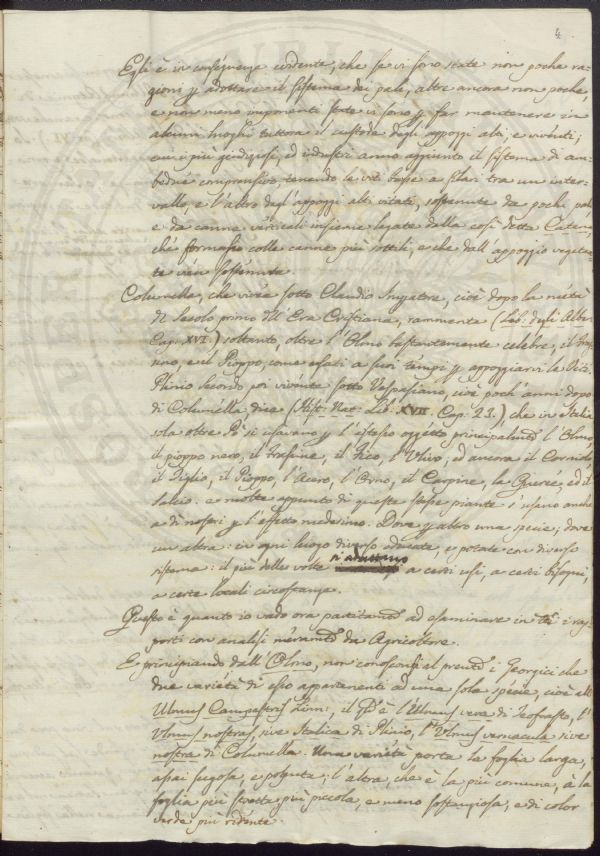 4
Egli è in conseguenza evidente, che se vi sono state non poche ra-
gioni p adottare il sistema dei pali, altre ancora non poche,
e non meno imponenti state vi sono p far mantenere in
alcuni luoghi tuttora il custode degli appoggi alti, e viventi;
cui i più giudiziosi, ed industri anno aggiunto il sistema di am-
bedue comprensivo, tenendo le viti basse a filari tra un inter-
vallo, e l'altro degl'appoggi alti vitati, sostenute da pochi pali
e da canne verticali insieme legate dalla così detta Catena,
ché formasi colle canne più sottili, e che dall'appoggio vegetan-
te vien sostenuta.
Columella, che vivea sotto Claudio Impatore, cioè dopo la metà
di Secolo primo dell'Era Cristiana, rammenta (Lib. degli Alberi
Cap. XVI.) soltanto, oltre l'Olmo bastantemente celebre, il fras-
sino, e il Pioppo, come usati a suoi tempi p appoggiarvi le Viti.
Plinio Secondo, poi vivente sotto Vespasiano, cioè poch'anni dopo
di Columella, dice (Hist. Nat. Lib. XVII. Cap. 23.), che in Italia
sola oltre Pò si usavano p l'istesso oggetto principalmte l'Olmo,
il pioppo nero, il frassine, il Fico, l'Ulivo, ed ancora il Corniolo
il Tiglio, il Pioppo, l'Acero, l'Orno, il Carpine, la Querce, ed il
Salcio. e molte appunto di queste stesse piante s'usano anche
a dì nostri p l'effetto medesimo. Dove p altro una specie; dove
un altra: in ogni luogo diverso educate, e potate con diverso
sistema: il più delle volte si adattano a certi usi, a certi bisogni,
a certe locali circostanze.
Questo è quanto io vado ora partitamte ad esaminare in tti i rap-
porti con analisi meramte da Agricoltore.
E principiando dall'Olmo, non conosconsi al presente i Georgici che
due varietà di esso appartenenti ad una sola specie, cioè all'
Ulmus Campestris Linn: il qle è l'Ulmus vera di Teofrasto, l'
Ulmus nostras, sive Italica di Plinio, l'Ulmus vernacula sive
nostra di Columella. Una varietà porta la foglia larga,
assai sugosa, e polputa; l'altra, che è la più comune, à la
foglia più stretta più piccola, e meno sostanziosa, e di color
verde più ridente.